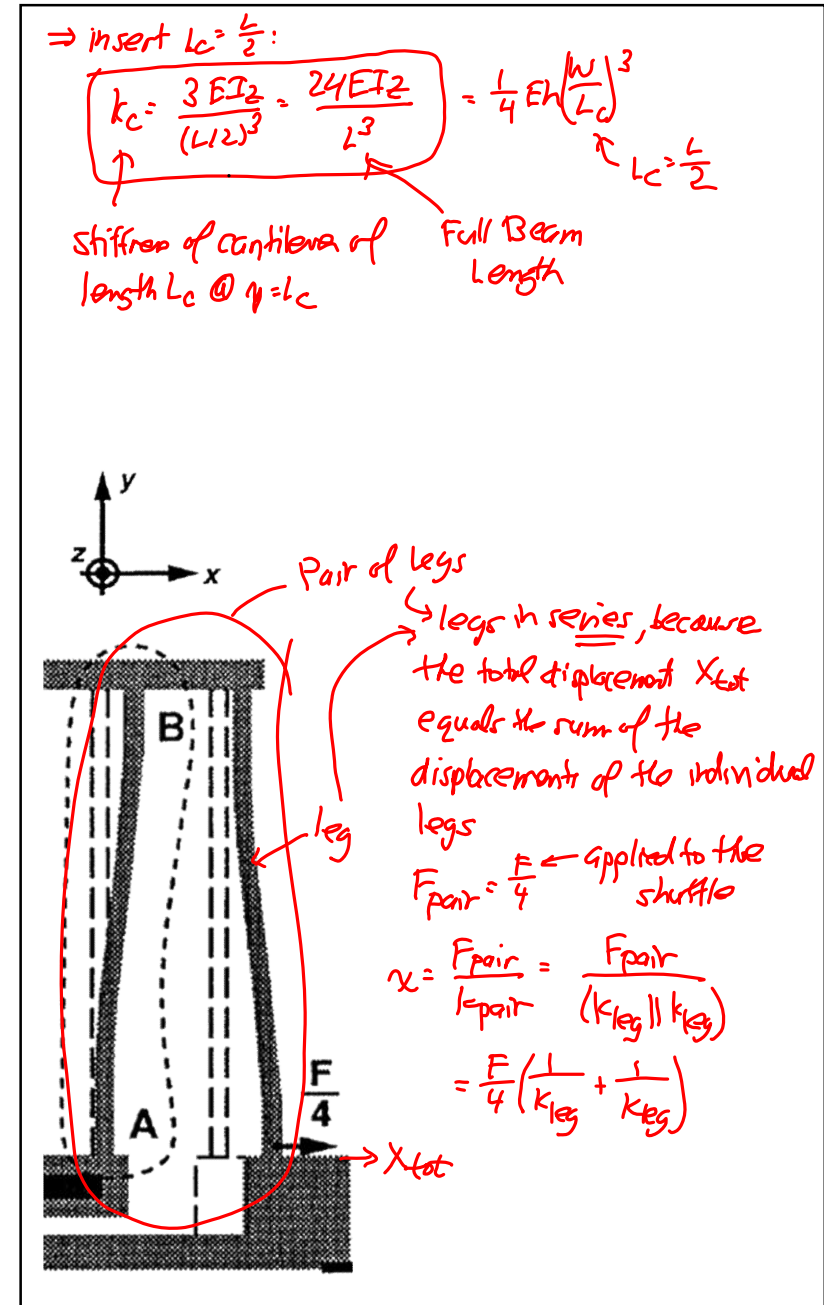 ⇒ insert Lc = L/2 :
kc = 3EIz/(L/2)^3 = 24EIz/L^3 = 1/4 Eh(W/Lc)^3
Lc = L/2
stiffness of cantilever of
length Lc @ y=Lc
Full Beam
Length
y
z
x
Pair of legs
→ legs in series, because
the total displacement Xtot
equals the sum of the
displacements of the individual
legs
B
leg
Fpair = F/4 ← applied to the
shuttle
x = Fpair/kpair = Fpair/(kleg || kleg)
= F/4 (1/kleg + 1/kleg)
F/4
A
→ Xtot